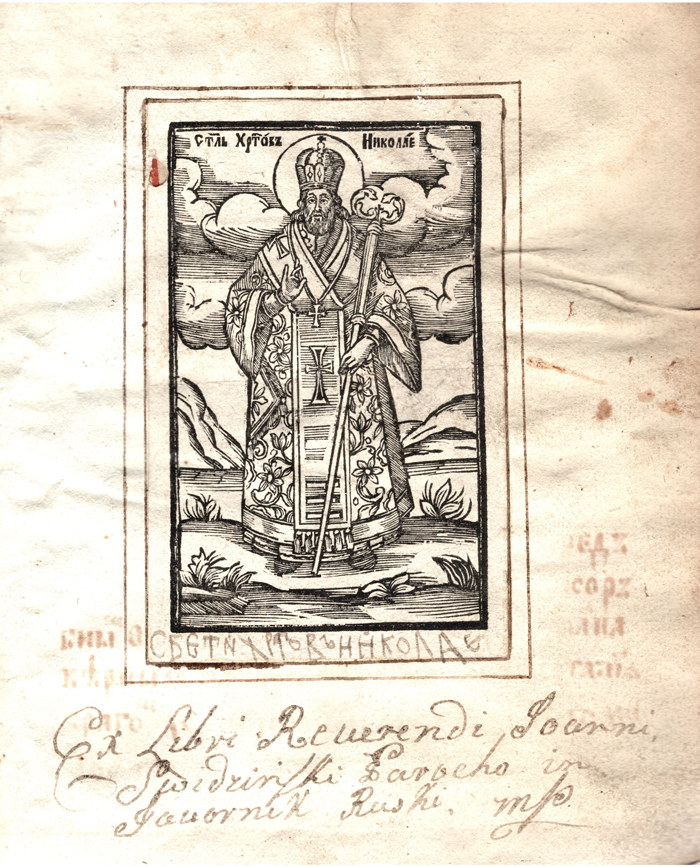 СТ҃ЛЬ ХР҃ТОВЪ НИКОЛАЕ
СВЕТИ ХРТЪВЪ НИКОЛАЕ
Ex Libri Reuerendi Joanni
Swidzinſki Parocho in
Jauornik Ruski. mp